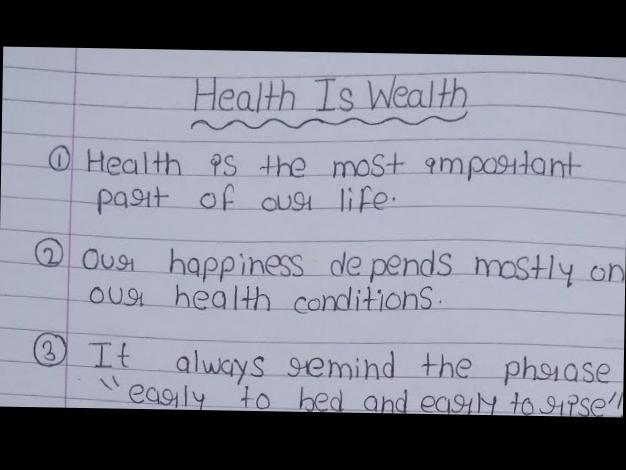 Health Is Wealth
① Health is the most important
part of our life.
② Our happiness depends mostly on
our health conditions.
③ It always remind the phrase
"early to bed and early to rise"